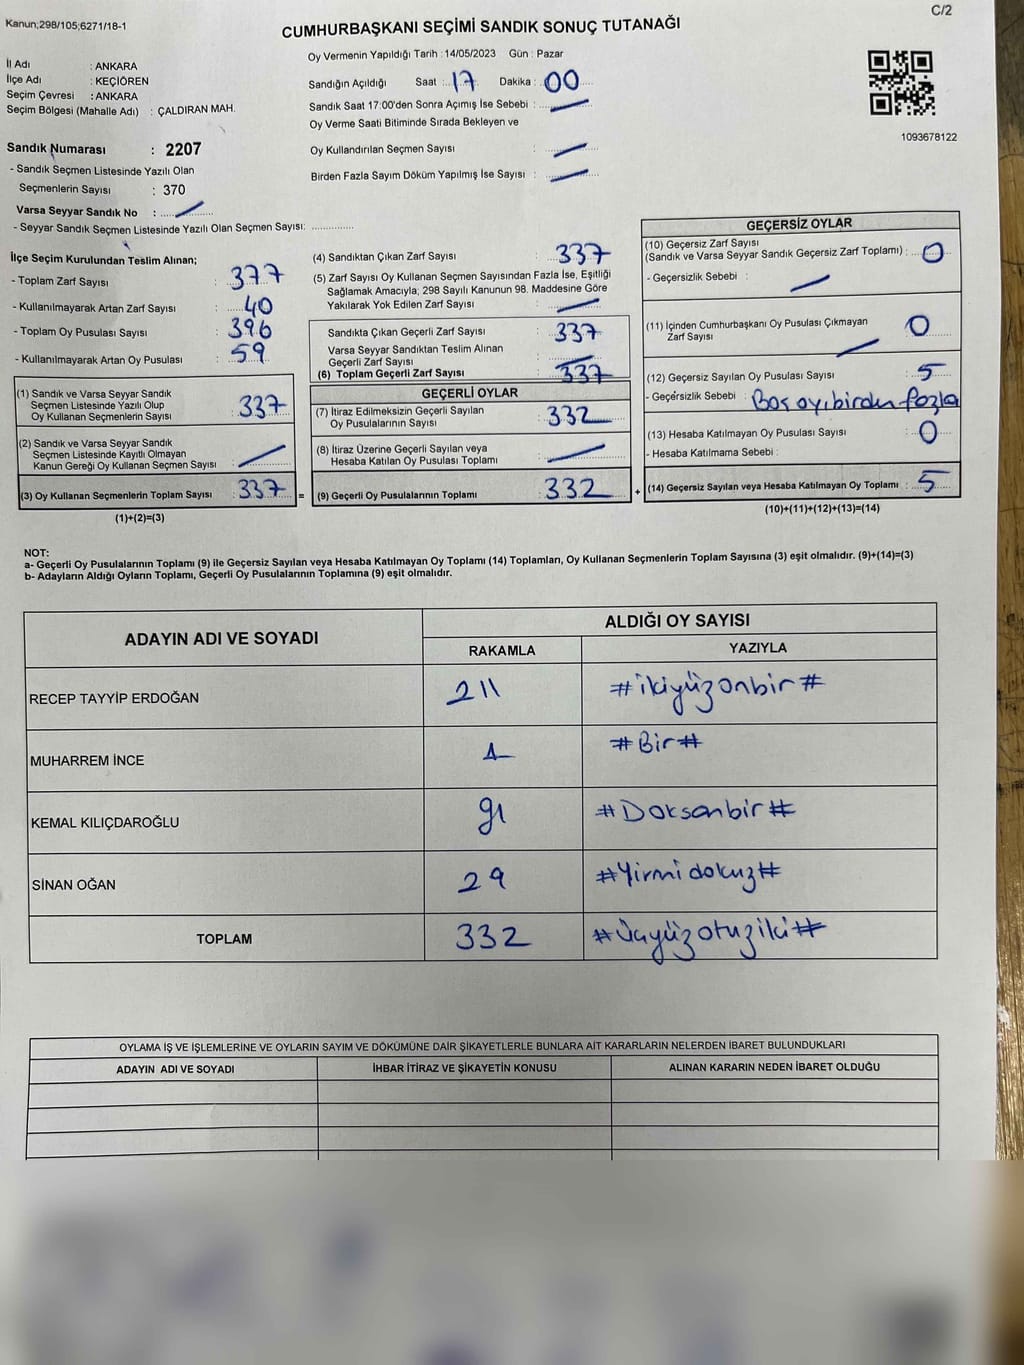 C/2
Kanun;298/105;6271/18-1
CUMHURBAŞKANI SEÇİMİ SANDIK SONUÇ TUTANAĞI
Oy Vermenin Yapıldığı Tarih : 14/05/2023 Gün : Pazar
İl Adı : ANKARA
İlçe Adı : KEÇİÖREN
Seçim Çevresi : ANKARA
Seçim Bölgesi (Mahalle Adı) : ÇALDIRAN MAH.
Sandık Numarası : 2207
- Sandık Seçmen Listesinde Yazılı Olan
Seçmenlerin Sayısı : 370
Varsa Seyyar Sandık No :
- Seyyar Sandık Seçmen Listesinde Yazılı Olan Seçmen Sayısı:
Sandığın Açıldığı Saat : 17 Dakika : 00
Sandık Saat 17:00'den Sonra Açımış İse Sebebi :
Oy Verme Saati Bitiminde Sırada Bekleyen ve
Oy Kullandırılan Seçmen Sayısı :
Birden Fazla Sayım Döküm Yapılmış İse Sayısı :
1093678122
İlçe Seçim Kurulundan Teslim Alınan;
- Toplam Zarf Sayısı : 377
- Kullanılmayarak Artan Zarf Sayısı : 40
- Toplam Oy Pusulası Sayısı : 396
- Kullanılmayarak Artan Oy Pusulası : 59
(1) Sandık ve Varsa Seyyar Sandık
Seçmen Listesinde Yazılı Olup
Oy Kullanan Seçmenlerin Sayısı : 337
(2) Sandık ve Varsa Seyyar Sandık
Seçmen Listesinde Kayıtlı Olmayan
Kanun Gereği Oy Kullanan Seçmen Sayısı :
(3) Oy Kullanan Seçmenlerin Toplam Sayısı : 337 =
(1)+(2)=(3)
(4) Sandıktan Çıkan Zarf Sayısı : 337
(5) Zarf Sayısı Oy Kullanan Seçmen Sayısından Fazla İse, Eşitliği
Sağlamak Amacıyla; 298 Sayılı Kanunun 98. Maddesine Göre
Yakılarak Yok Edilen Zarf Sayısı :
Sandıkta Çıkan Geçerli Zarf Sayısı : 337
Varsa Seyyar Sandıktan Teslim Alınan
Geçerli Zarf Sayısı :
(6) Toplam Geçerli Zarf Sayısı : 337
GEÇERLİ OYLAR
(7) İtiraz Edilmeksizin Geçerli Sayılan
Oy Pusulalarının Sayısı : 332
(8) İtiraz Üzerine Geçerli Sayılan veya
Hesaba Katılan Oy Pusulası Toplamı :
(9) Geçerli Oy Pusulalarının Toplamı : 332 +
GEÇERSİZ OYLAR
(10) Geçersiz Zarf Sayısı
(Sandık ve Varsa Seyyar Geçersiz Zarf Toplamı) : 0
- Geçersizlik Sebebi :
(11) İçinden Cumhurbaşkanı Oy Pusulası Çıkmayan
Zarf Sayısı : 0
(12) Geçersiz Sayılan Oy Pusulası Sayısı : 5
- Geçersizlik Sebebi : Boş oy, birden fazla
(13) Hesaba Katılmayan Oy Pusulası Sayısı : 0
- Hesaba Katılmama Sebebi :
(14) Geçersiz Sayılan veya Hesaba Katılmayan Oy Toplamı : 5
(10)+(11)+(12)+(13)=(14)
NOT:
a- Geçerli Oy Pusulalarının Toplamı (9) ile Geçersiz Sayılan veya Hesaba Katılmayan Oy Toplamı (14) Toplamları, Oy Kullanan Seçmenlerin Toplam Sayısına (3) eşit olmalıdır. (9)+(14)=(3)
b- Adayların Aldığı Oyların Toplamı, Geçerli Oy Pusulalarının Toplamına (9) eşit olmalıdır.
ADAYIN ADI VE SOYADI ALDIĞI OY SAYISI
RAKAMLA YAZIYLA
RECEP TAYYİP ERDOĞAN 211 #ikiyüzonbir#
MUHARREM İNCE 1 #Bir#
KEMAL KILIÇDAROĞLU 91 #Doksanbir#
SİNAN OĞAN 29 #Yirmidokuz#
TOPLAM 332 #Üçyüzotuziki#
OYLAMA İŞ VE İŞLEMLERİNE VE OYLARIN SAYIM VE DÖKÜMÜNE DAİR ŞİKAYETLERLE BUNLARA AİT KARARLARIN NELERDEN İBARET BULUNDUKLARI
ADAYIN ADI VE SOYADI İHBAR İTİRAZ VE ŞİKAYETİN KONUSU ALINAN KARARIN NEDEN İBARET OLDUĞU